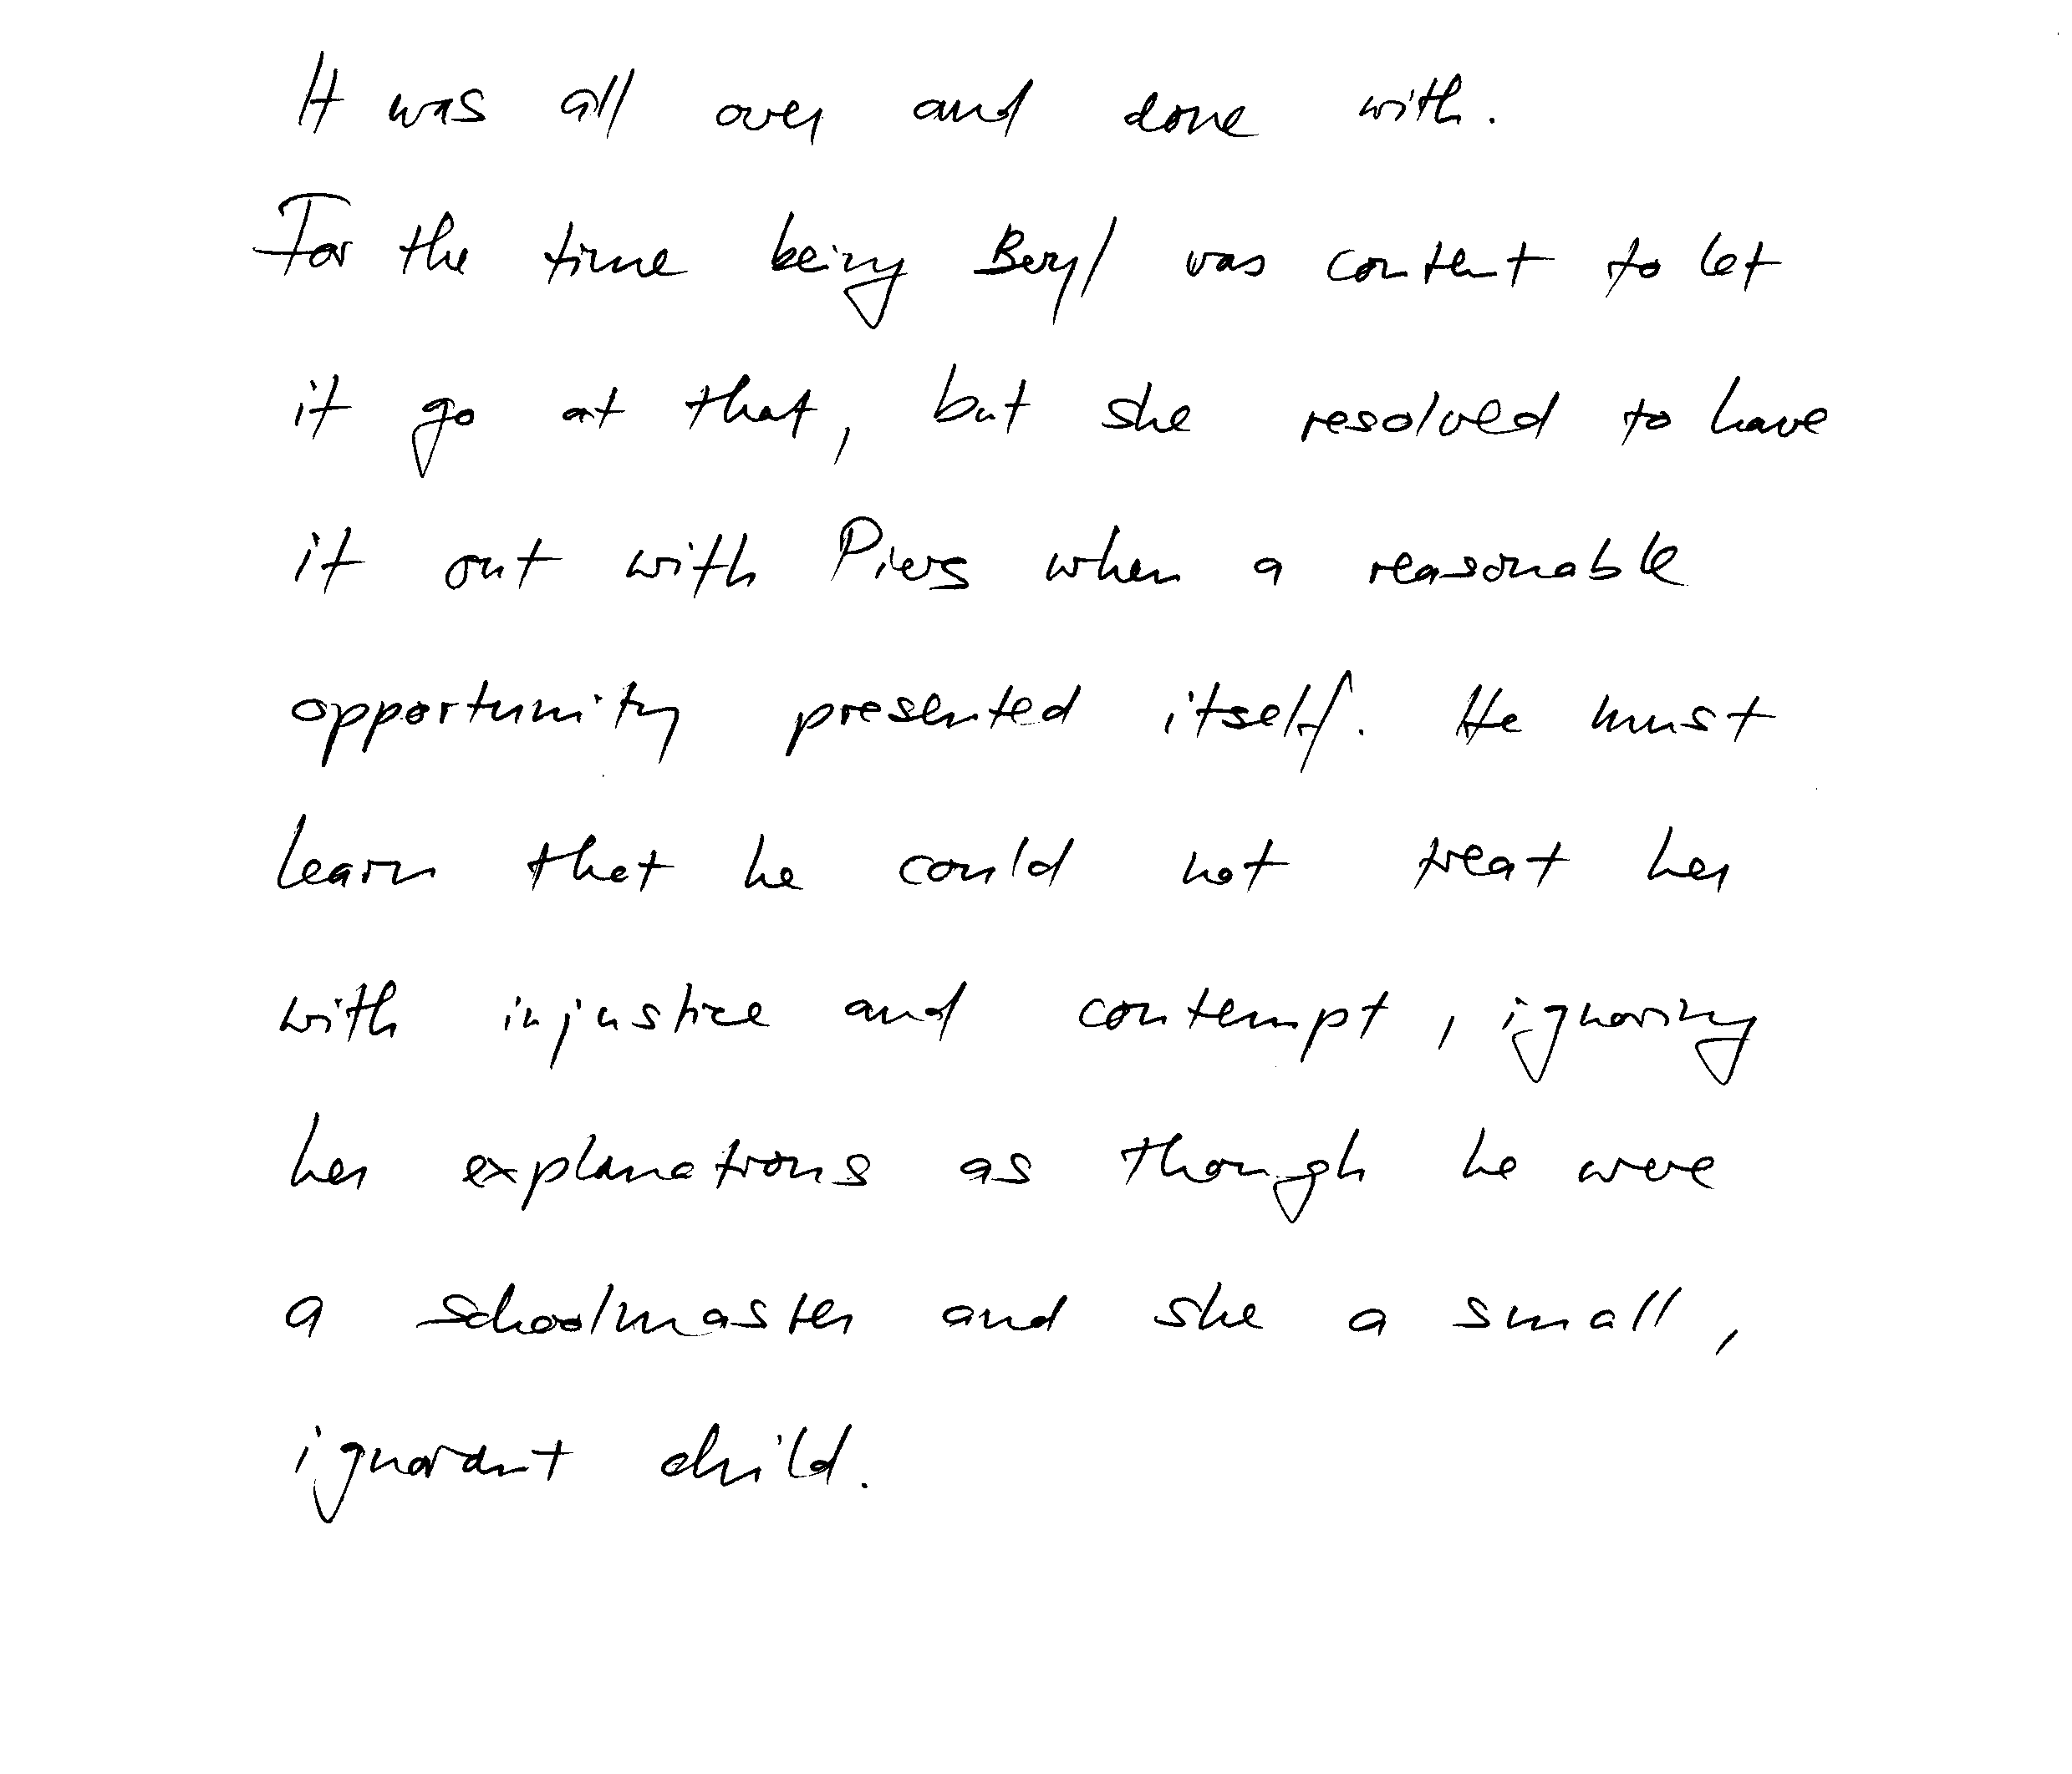 It was all over and done with.
For the time being Beryl was content to let
it go at that, but she resolved to have
it out with Piers when a reasonable
opportunity presented itself. He must
learn that he could not treat her
with injustice and contempt, ignoring
her explanations as though he were
a schoolmaster and she a small,
ignorant child.